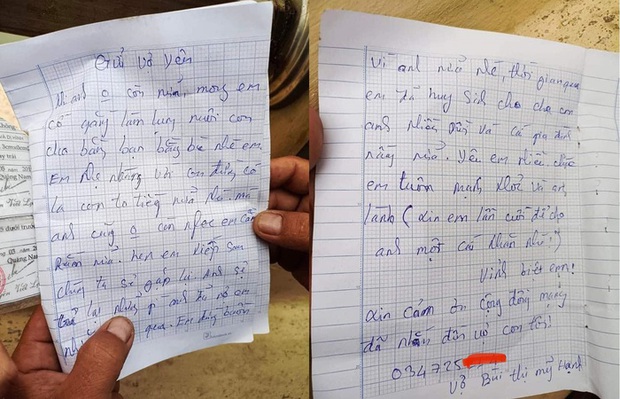 Gửi vợ yêu
Khi anh o còn nữa, mong em
cố gắng làm lụng nuôi con
cho bằng bạn bằng bè nhé em
Em nhẹ nhàng với con đừng có
la con to tiếng nữa nhé mà
anh cũng o còn nhọc em cằn
nhằn nữa. hẹn em kiếp sau
chúng ta sẽ gặp lại anh sẽ
trả lại những gì anh đã nợ em
qua. Em đừng buồn
vì anh nữa nhé, thời gian qua
em đã huy sinh cho cha con
anh nhiều rồi và cả gia đình
này nữa. Yêu em nhiều chúc
em luôn mạnh khoẻ và an
lành (xin em lần cuối để cho
anh một cái nhẫn nhé!)
Vĩnh biệt em!
xin cảm ơn cộng đồng mạng
đã nhắn đến vợ con tôi!
034725
Vợ Bùi thị mỹ Hạnh